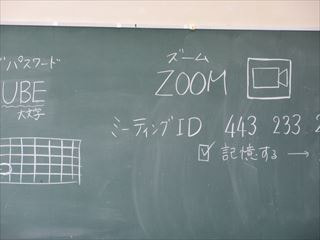 パスワード
UBE
大文字
ズーム
ZOOM
ミーティングID 443 233
記憶する →